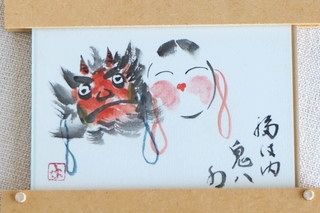 福は内
鬼ハ
外